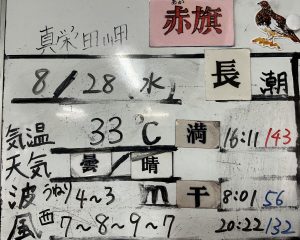 真栄田岬 赤旗
8/28水 長潮
気温 33℃ 満 16:11 143
天気 曇/晴
波 うねり 4~3m 干 8:01 56
風 西 7~8~9~7 20:22 132